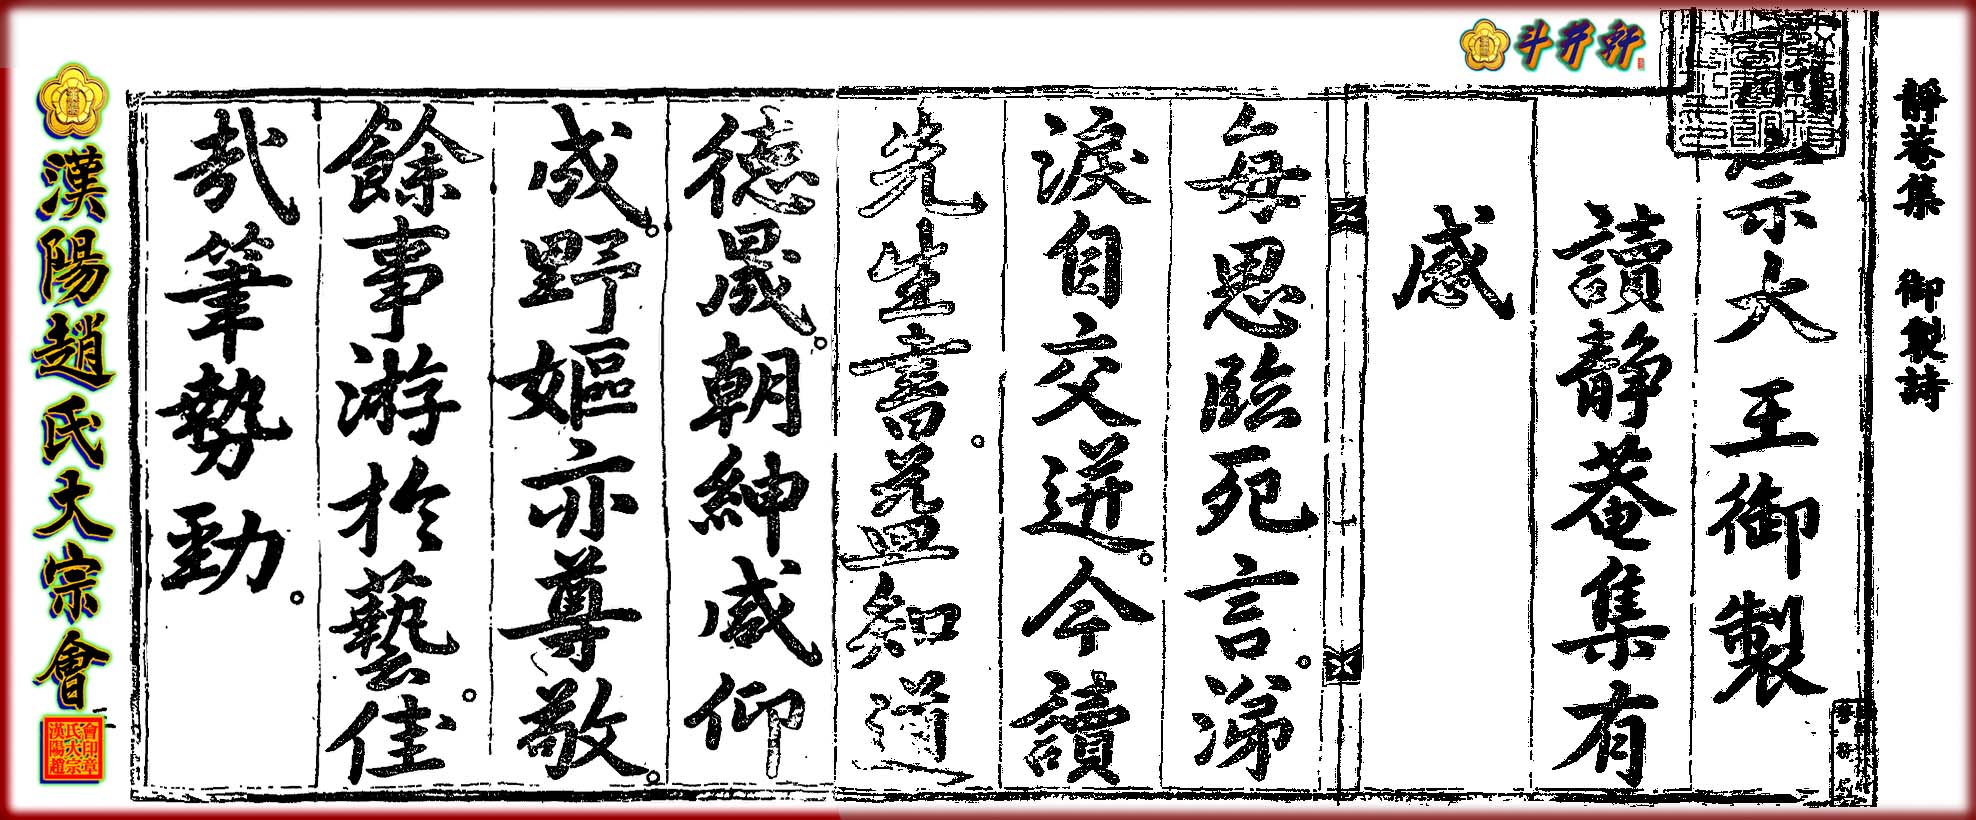 靜菴集 御製詩
斗井軒
宗大王御製
讀靜菴集有
感
每思臨死言涕
淚自交迸今讀
先生書益知道
德晟朝紳咸仰
成野嫗亦尊敬
餘事游於藝佳
哉筆勢勁
漢陽趙氏大宗會
會印章
氏大宗
漢陽趙